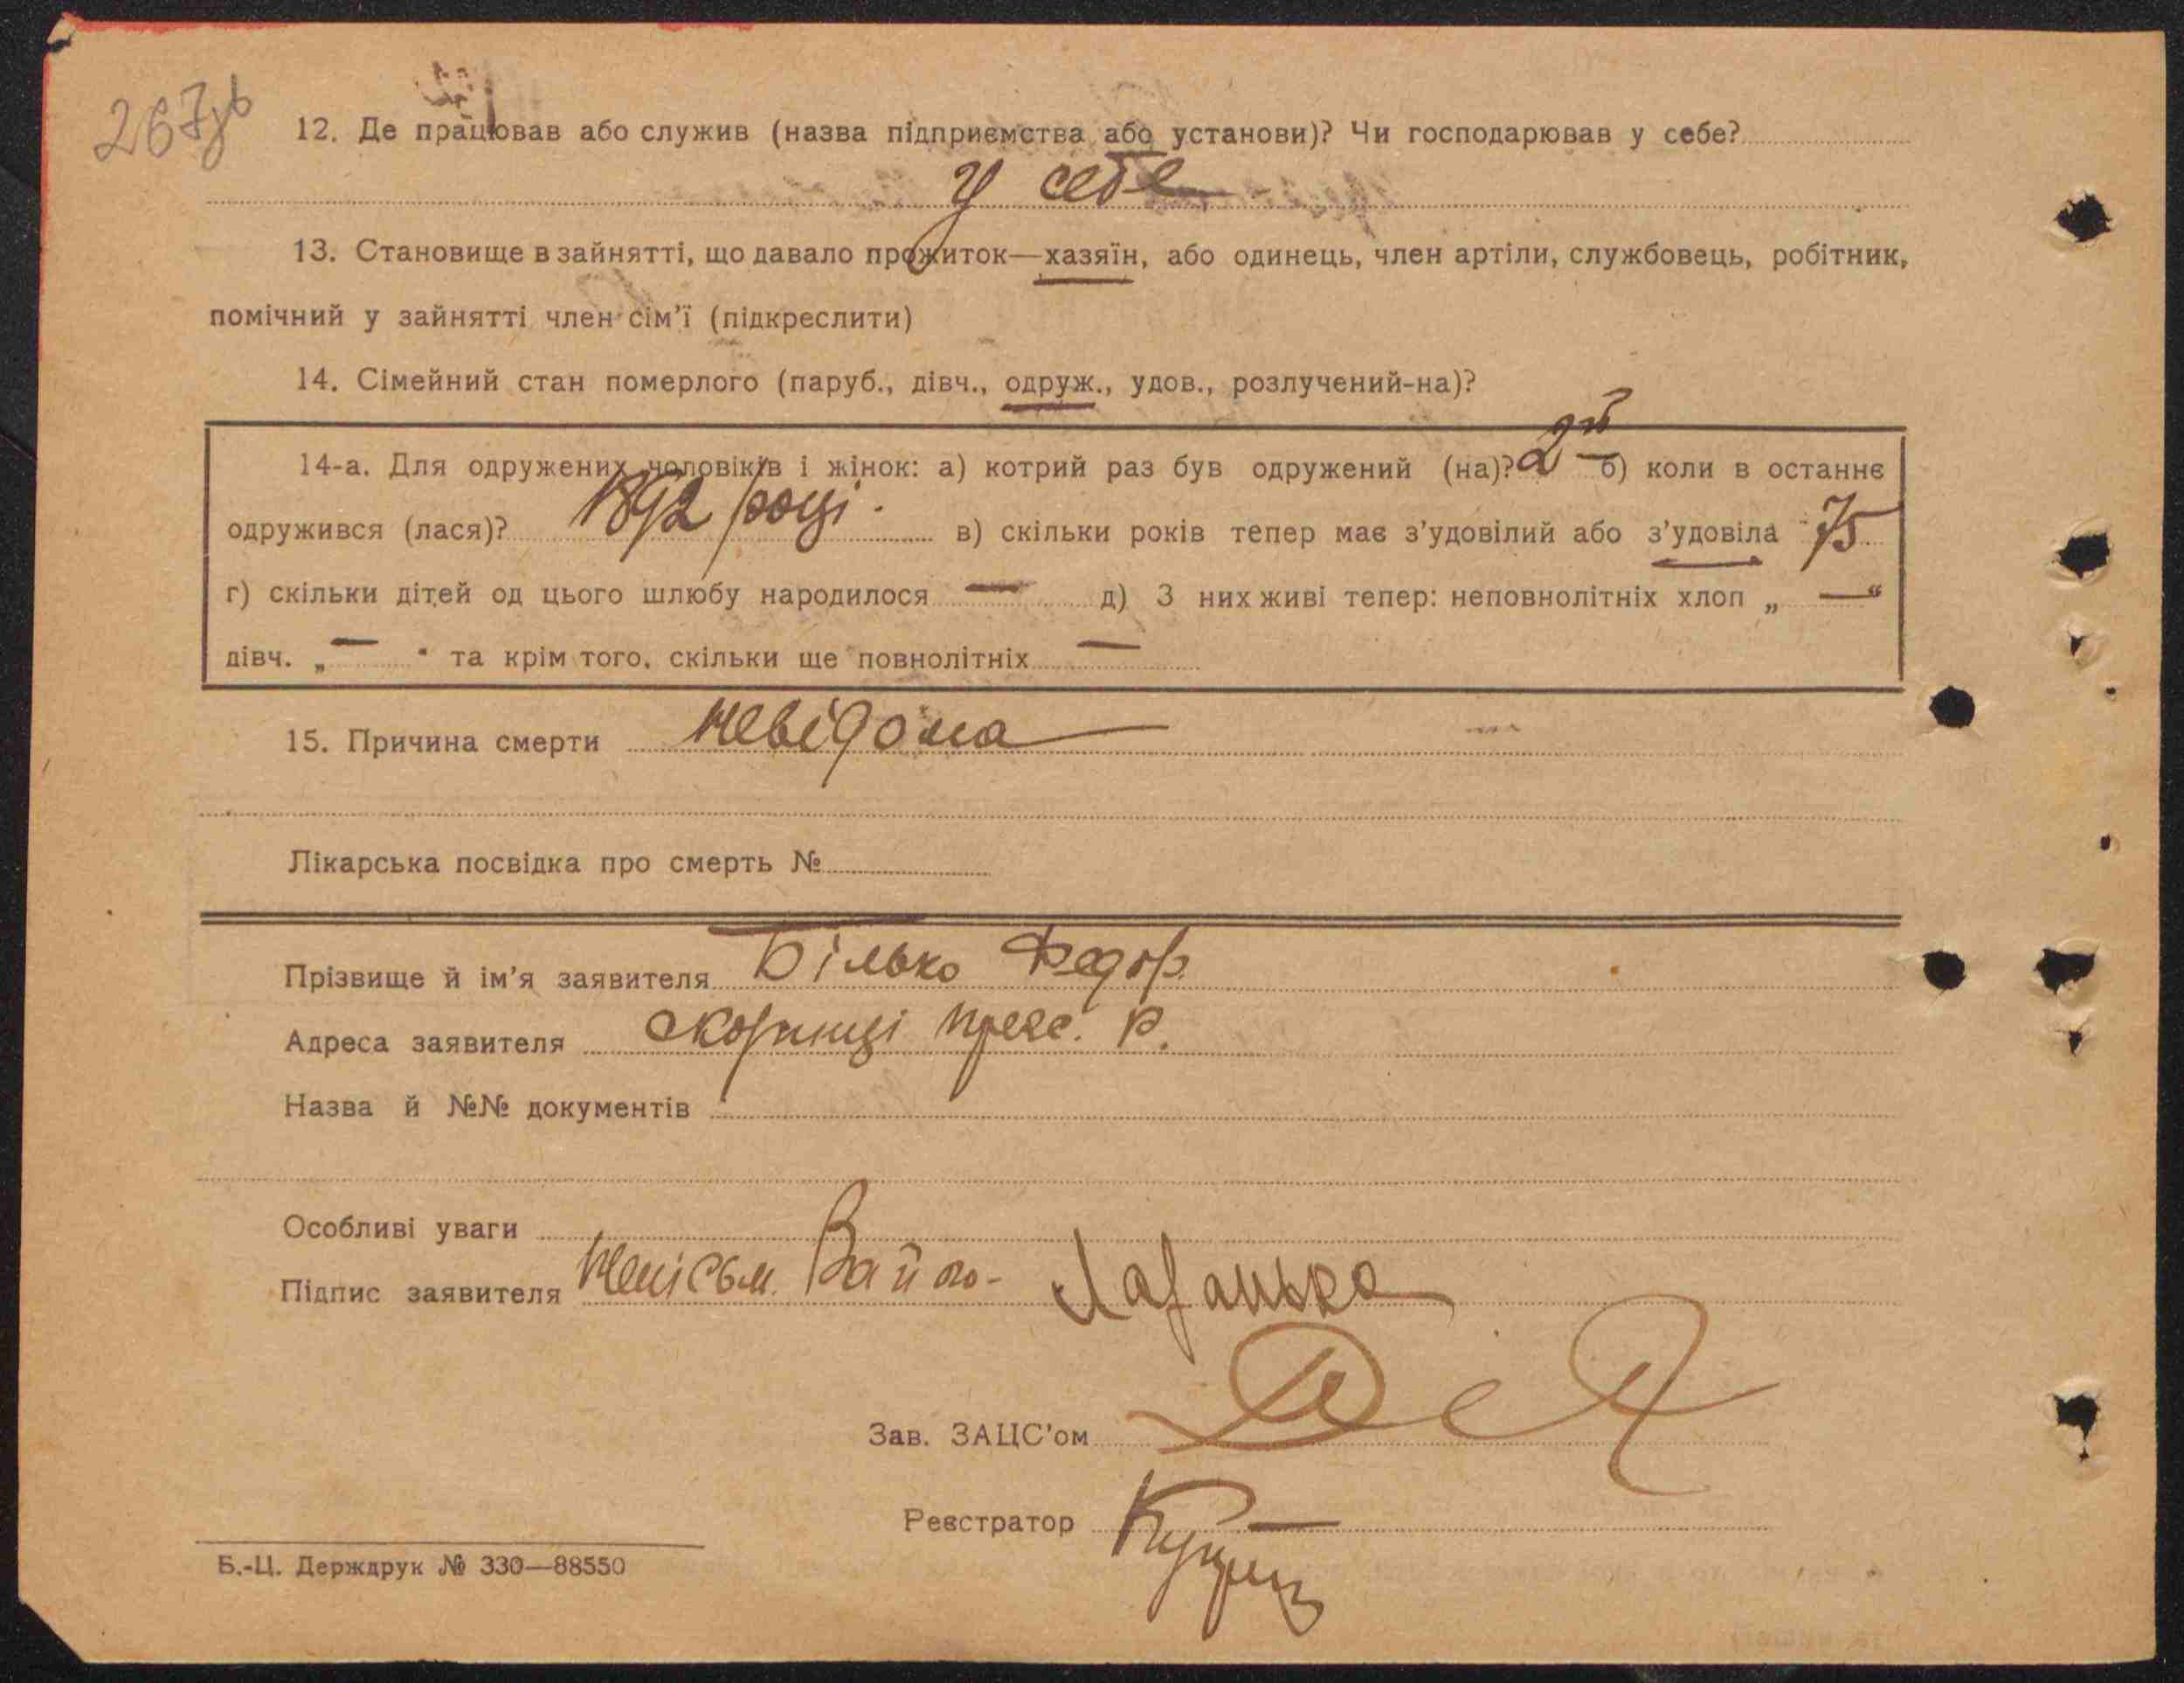 267зв
12. Де працював або служив (назва підприємства або установи)? Чи господарював у себе?
У себе
13. Становище в зайнятті, що давало прожиток—хазяїн, або одинець, член артіли, службовець, робітник,
помічний у зайнятті член сім'ї (підкреслити)
14. Сімейний стан померлого (паруб., дівч., одруж., удов., розлучений-на)?
14-а. Для одружених чоловіків і жінок: а) котрий раз був одружений (на)? 2й б) коли в останнє
одружився (лася)? 1892 році. в) скільки років тепер має з'удовілий або з'удовіла 75
г) скільки дітей од цього шлюбу народилося — д) З них живі тепер: неповнолітніх хлоп „ — “
дівч. „ — “ та крім того, скільки ще повнолітніх —
15. Причина смерти невідома
Лікарська посвідка про смерть №
Прізвище й ім'я заявителя Білько Федор
Адреса заявителя
Назва й №№ документів
Особливі уваги
Підпис заявителя
Зав. ЗАЦС'ом
Реєстратор
Б.-Ц. Держдрук № 330—88550